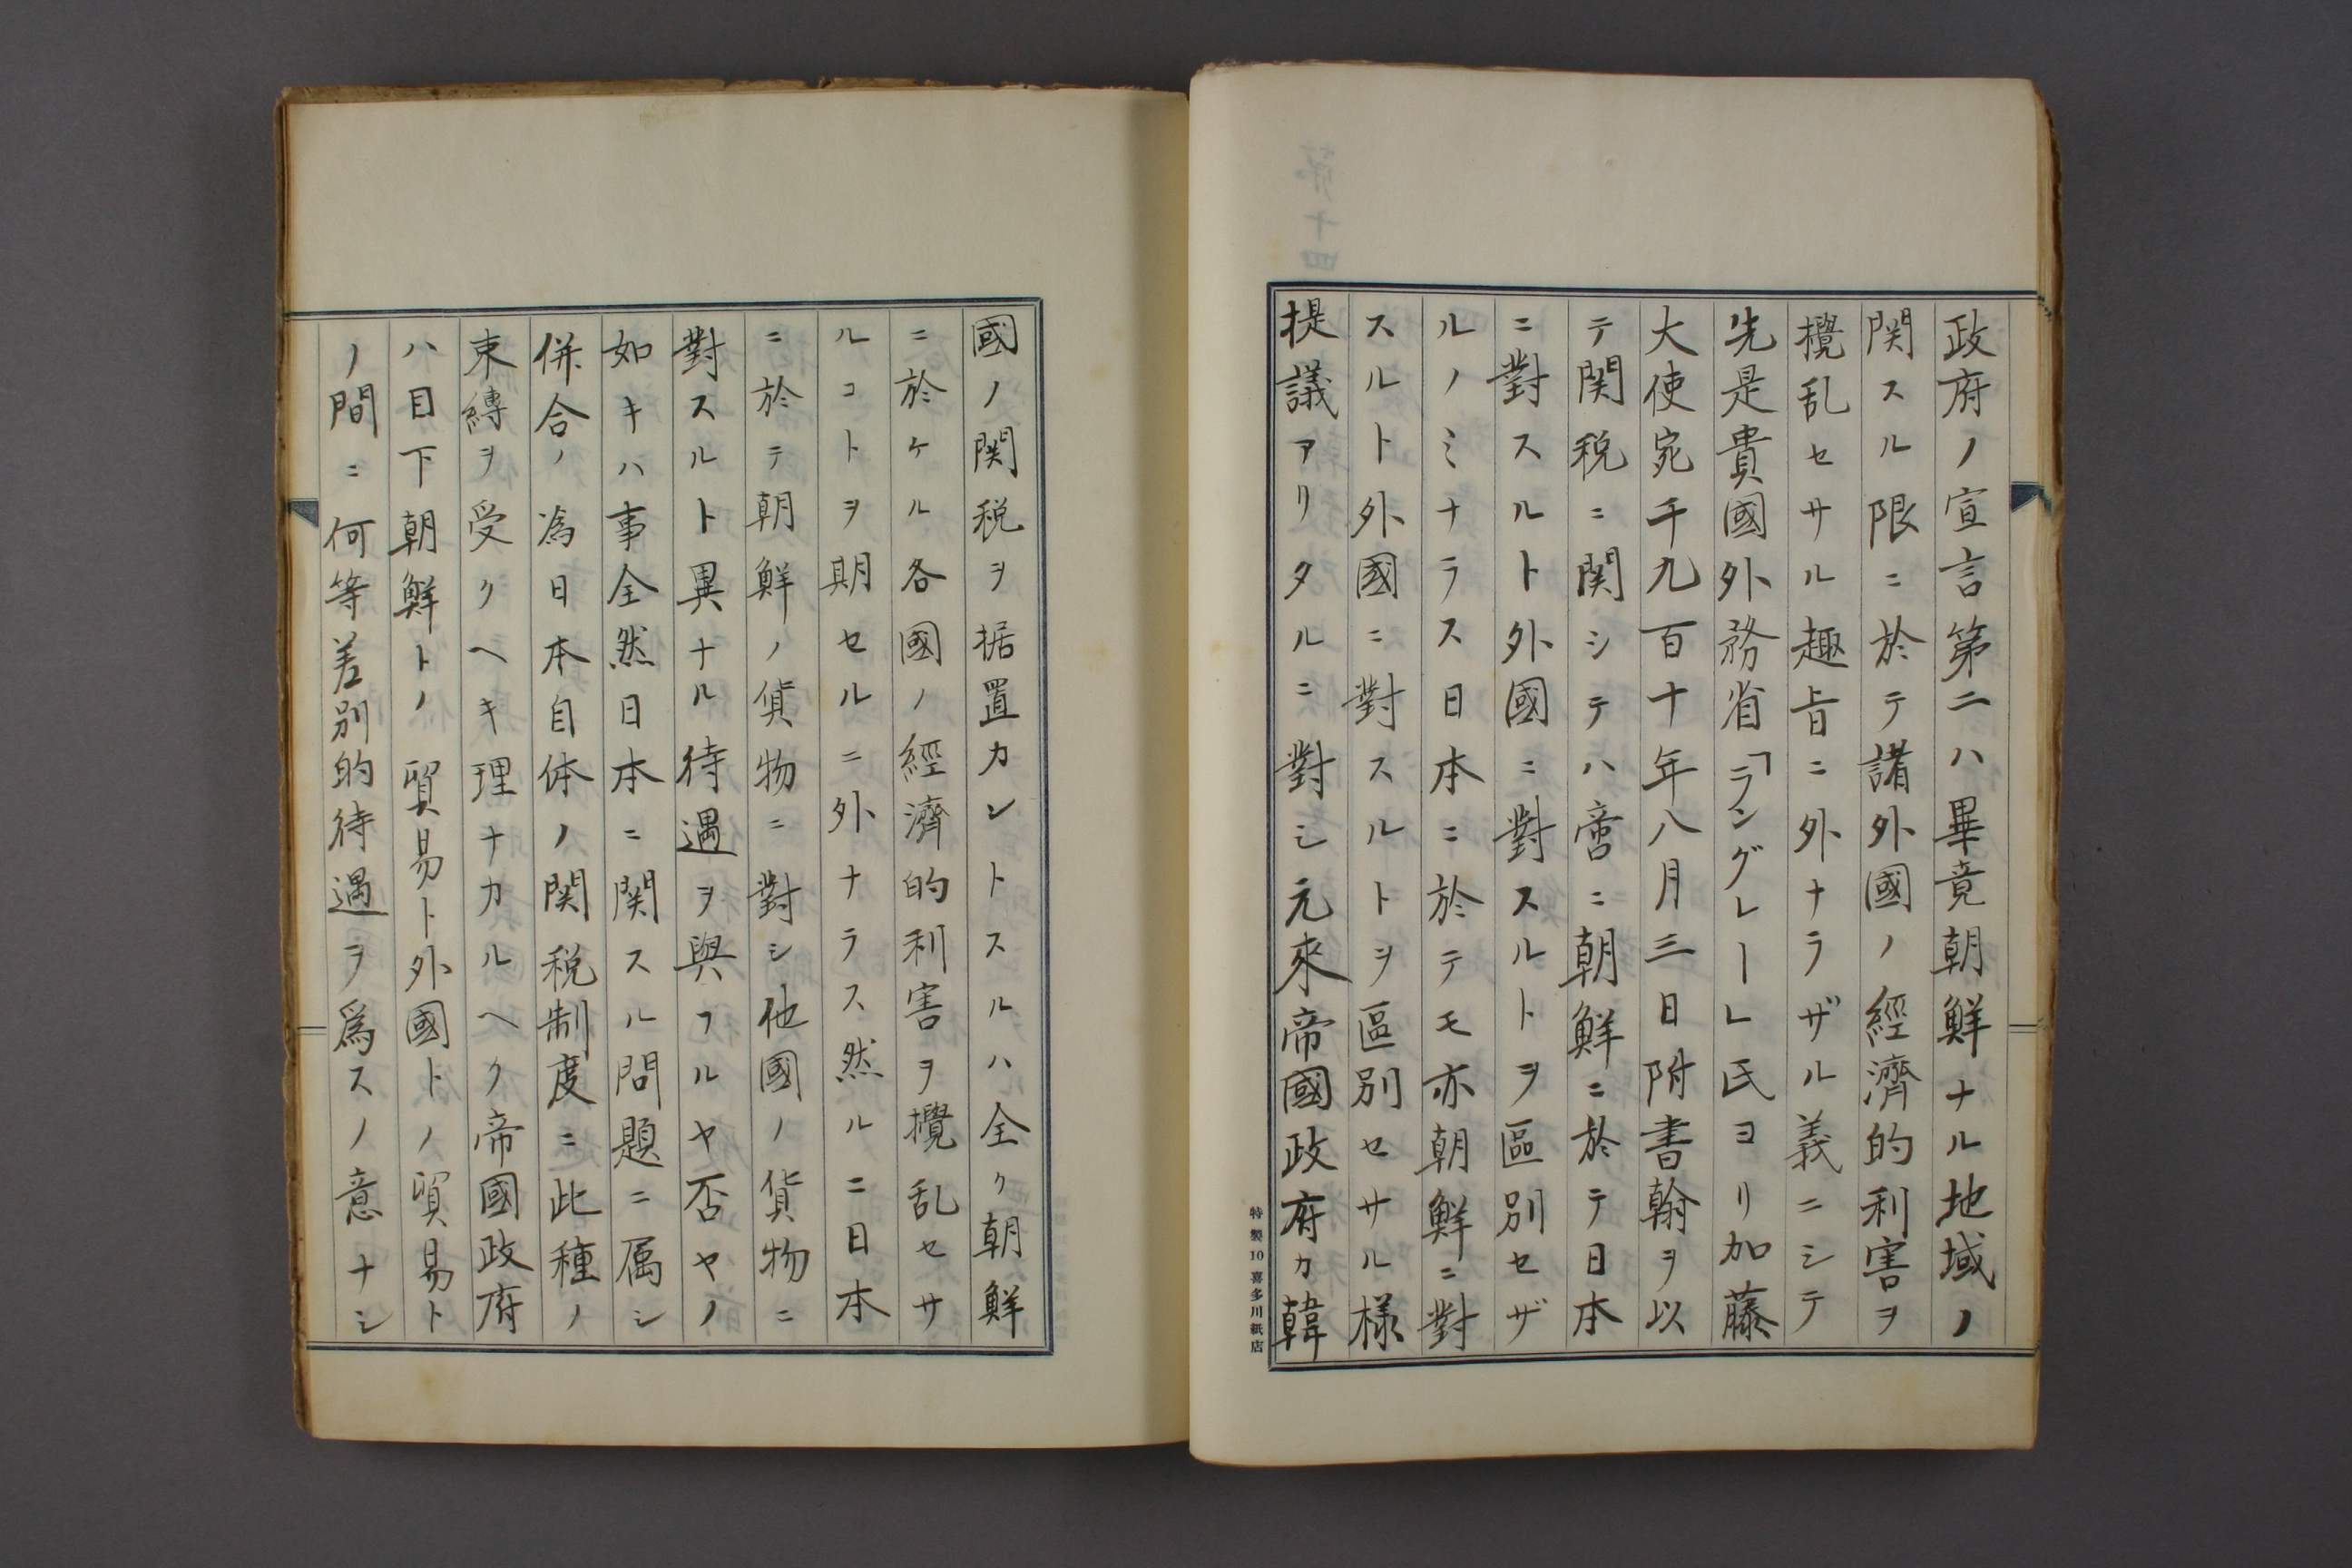 政府ノ宣言第二ハ畢竟朝鮮ナル地域ノ
関スル限ニ於テ諸外國ノ經濟的利害ヲ
攪乱セサル趣旨ニ外ナラザル義ニシテ
先是貴國外務省「ラングレー」氏ヨリ加藤
大使宛千九百十年八月三日附書翰ヲ以
テ関税ニ関シテハ啻ニ朝鮮ニ於テ日本
ニ對スルト外國ニ對スルトヲ區別セザ
ルノミナラス日本ニ於テモ亦朝鮮ニ對
スルト外國ニ對スルトヲ區別セサル樣
提議アリタルニ對シ元來帝國政府カ韓
特製10 喜多川紙店
國ノ関税ヲ据置カントスルハ全ク朝鮮
ニ於ケル各國ノ經濟的利害ヲ攪乱セサ
ルコトヲ期セルニ外ナラス然ルニ日本
ニ於テ朝鮮ノ貨物ニ對シ他國ノ貨物ニ
對スルト異ナル待遇ヲ與フルヤ否ヤノ
如キハ事全然日本ニ関スル問題ニ属シ
併合ノ為日本自体ノ関税制度ニ此種ノ
束縛ヲ受クヘキ理ナカルヘク帝國政府
ハ目下朝鮮トノ貿易ト外國トノ貿易ト
ノ間ニ何等差別的待遇ヲ爲スノ意ナシ